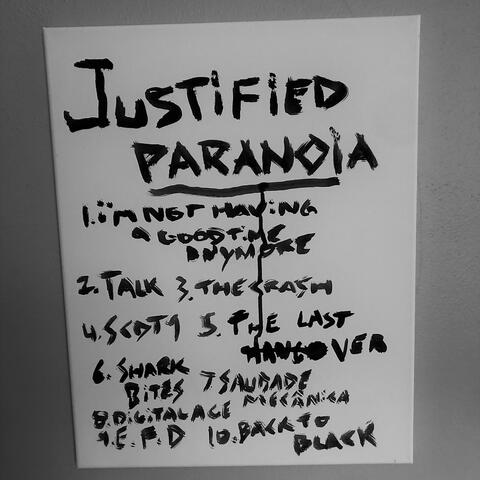 JUSTiFiED
PARANOiA
1. i'M NOT HAViNG
A GOOD TiME
ANYMORE
2. TALK 3. THE CRASH
4. SCDT9 5. THE LAST
HANGOVER
6. SHARK
BiTES 7 SAUDADE
MECÂNiCA
8. DiGiTAL AGE
9. E.P.D 10. BACK TO
BLACK